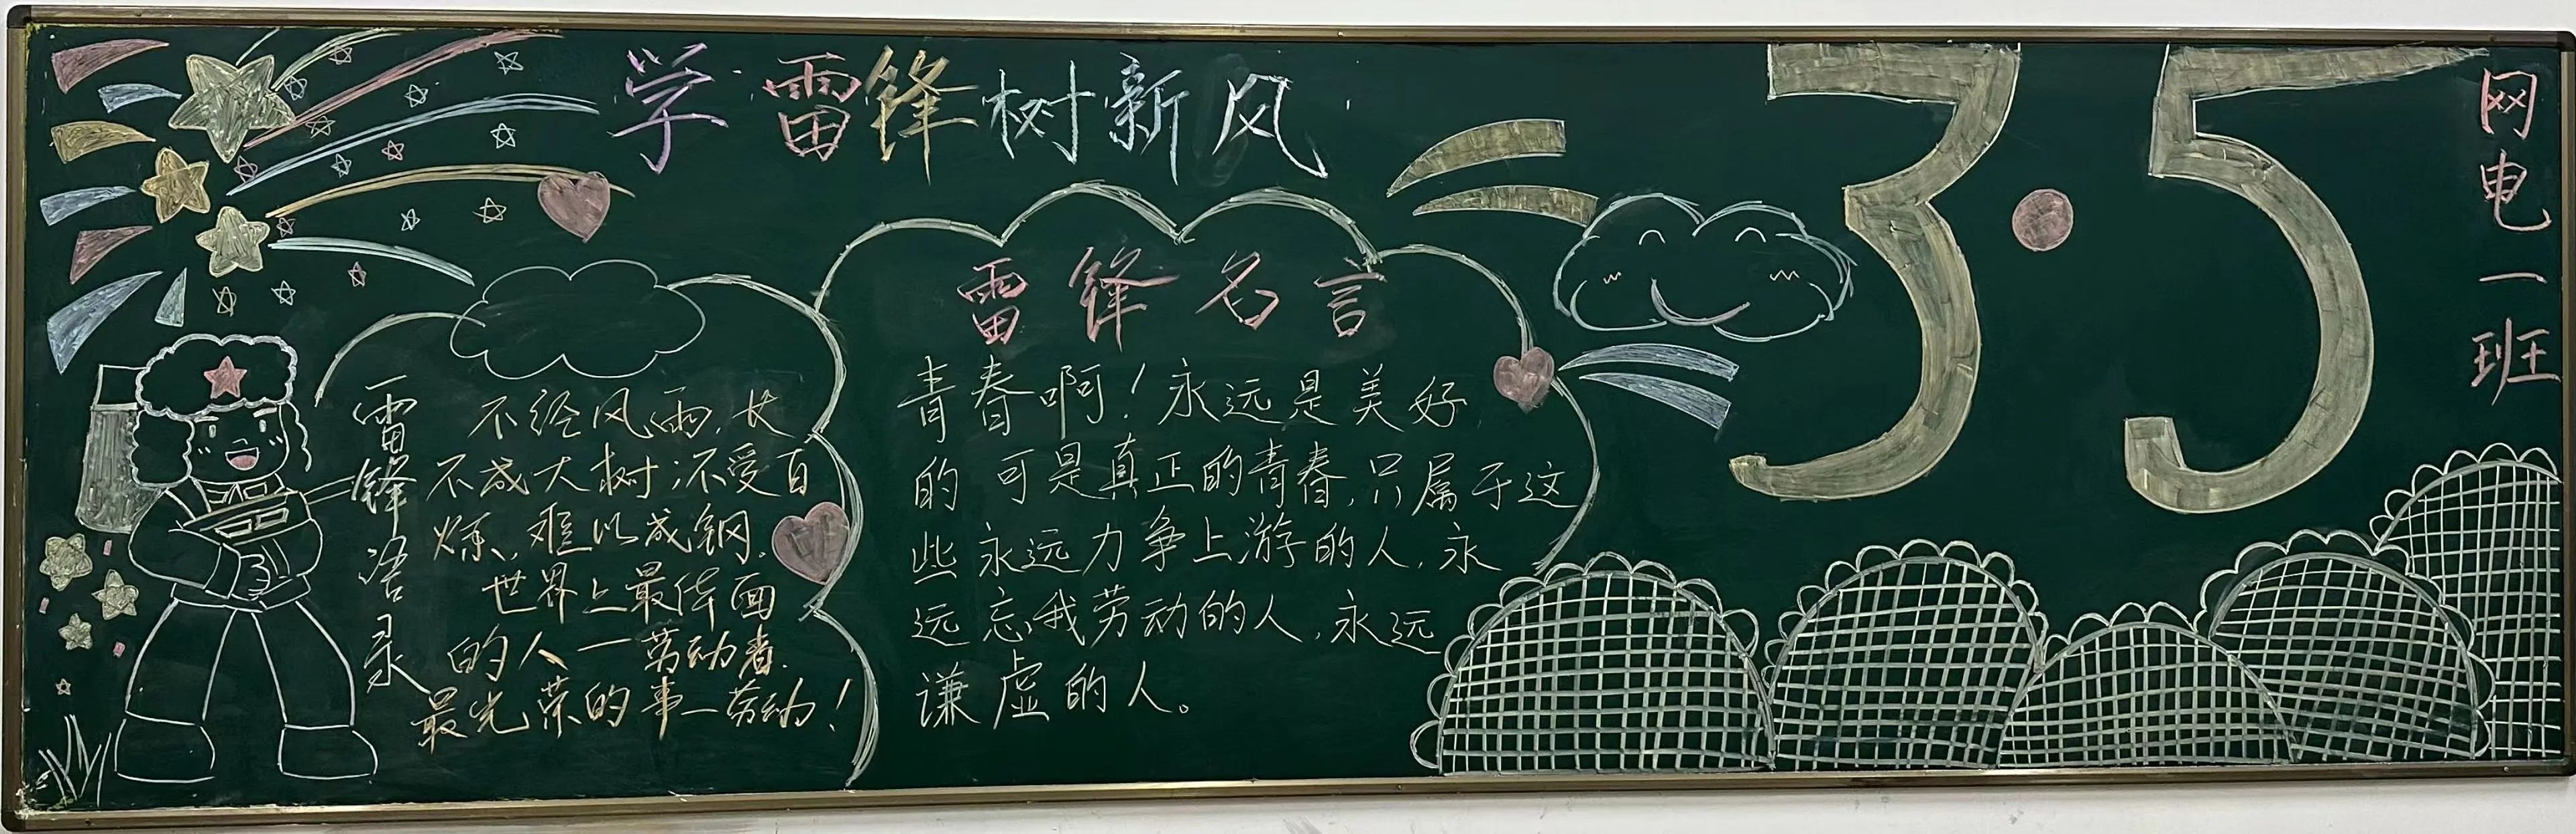 学雷锋树新风
3·5
网电一班
雷锋语录
不经风雨,长
不成大树;不受百
炼,难以成钢。
世界上最体面
的人一劳动者.
最光荣的事一劳动!
雷锋名言
青春啊!永远是美好
的 可是真正的青春,只属于这
些永远力争上游的人,永
远忘我劳动的人,永远
谦虚的人。